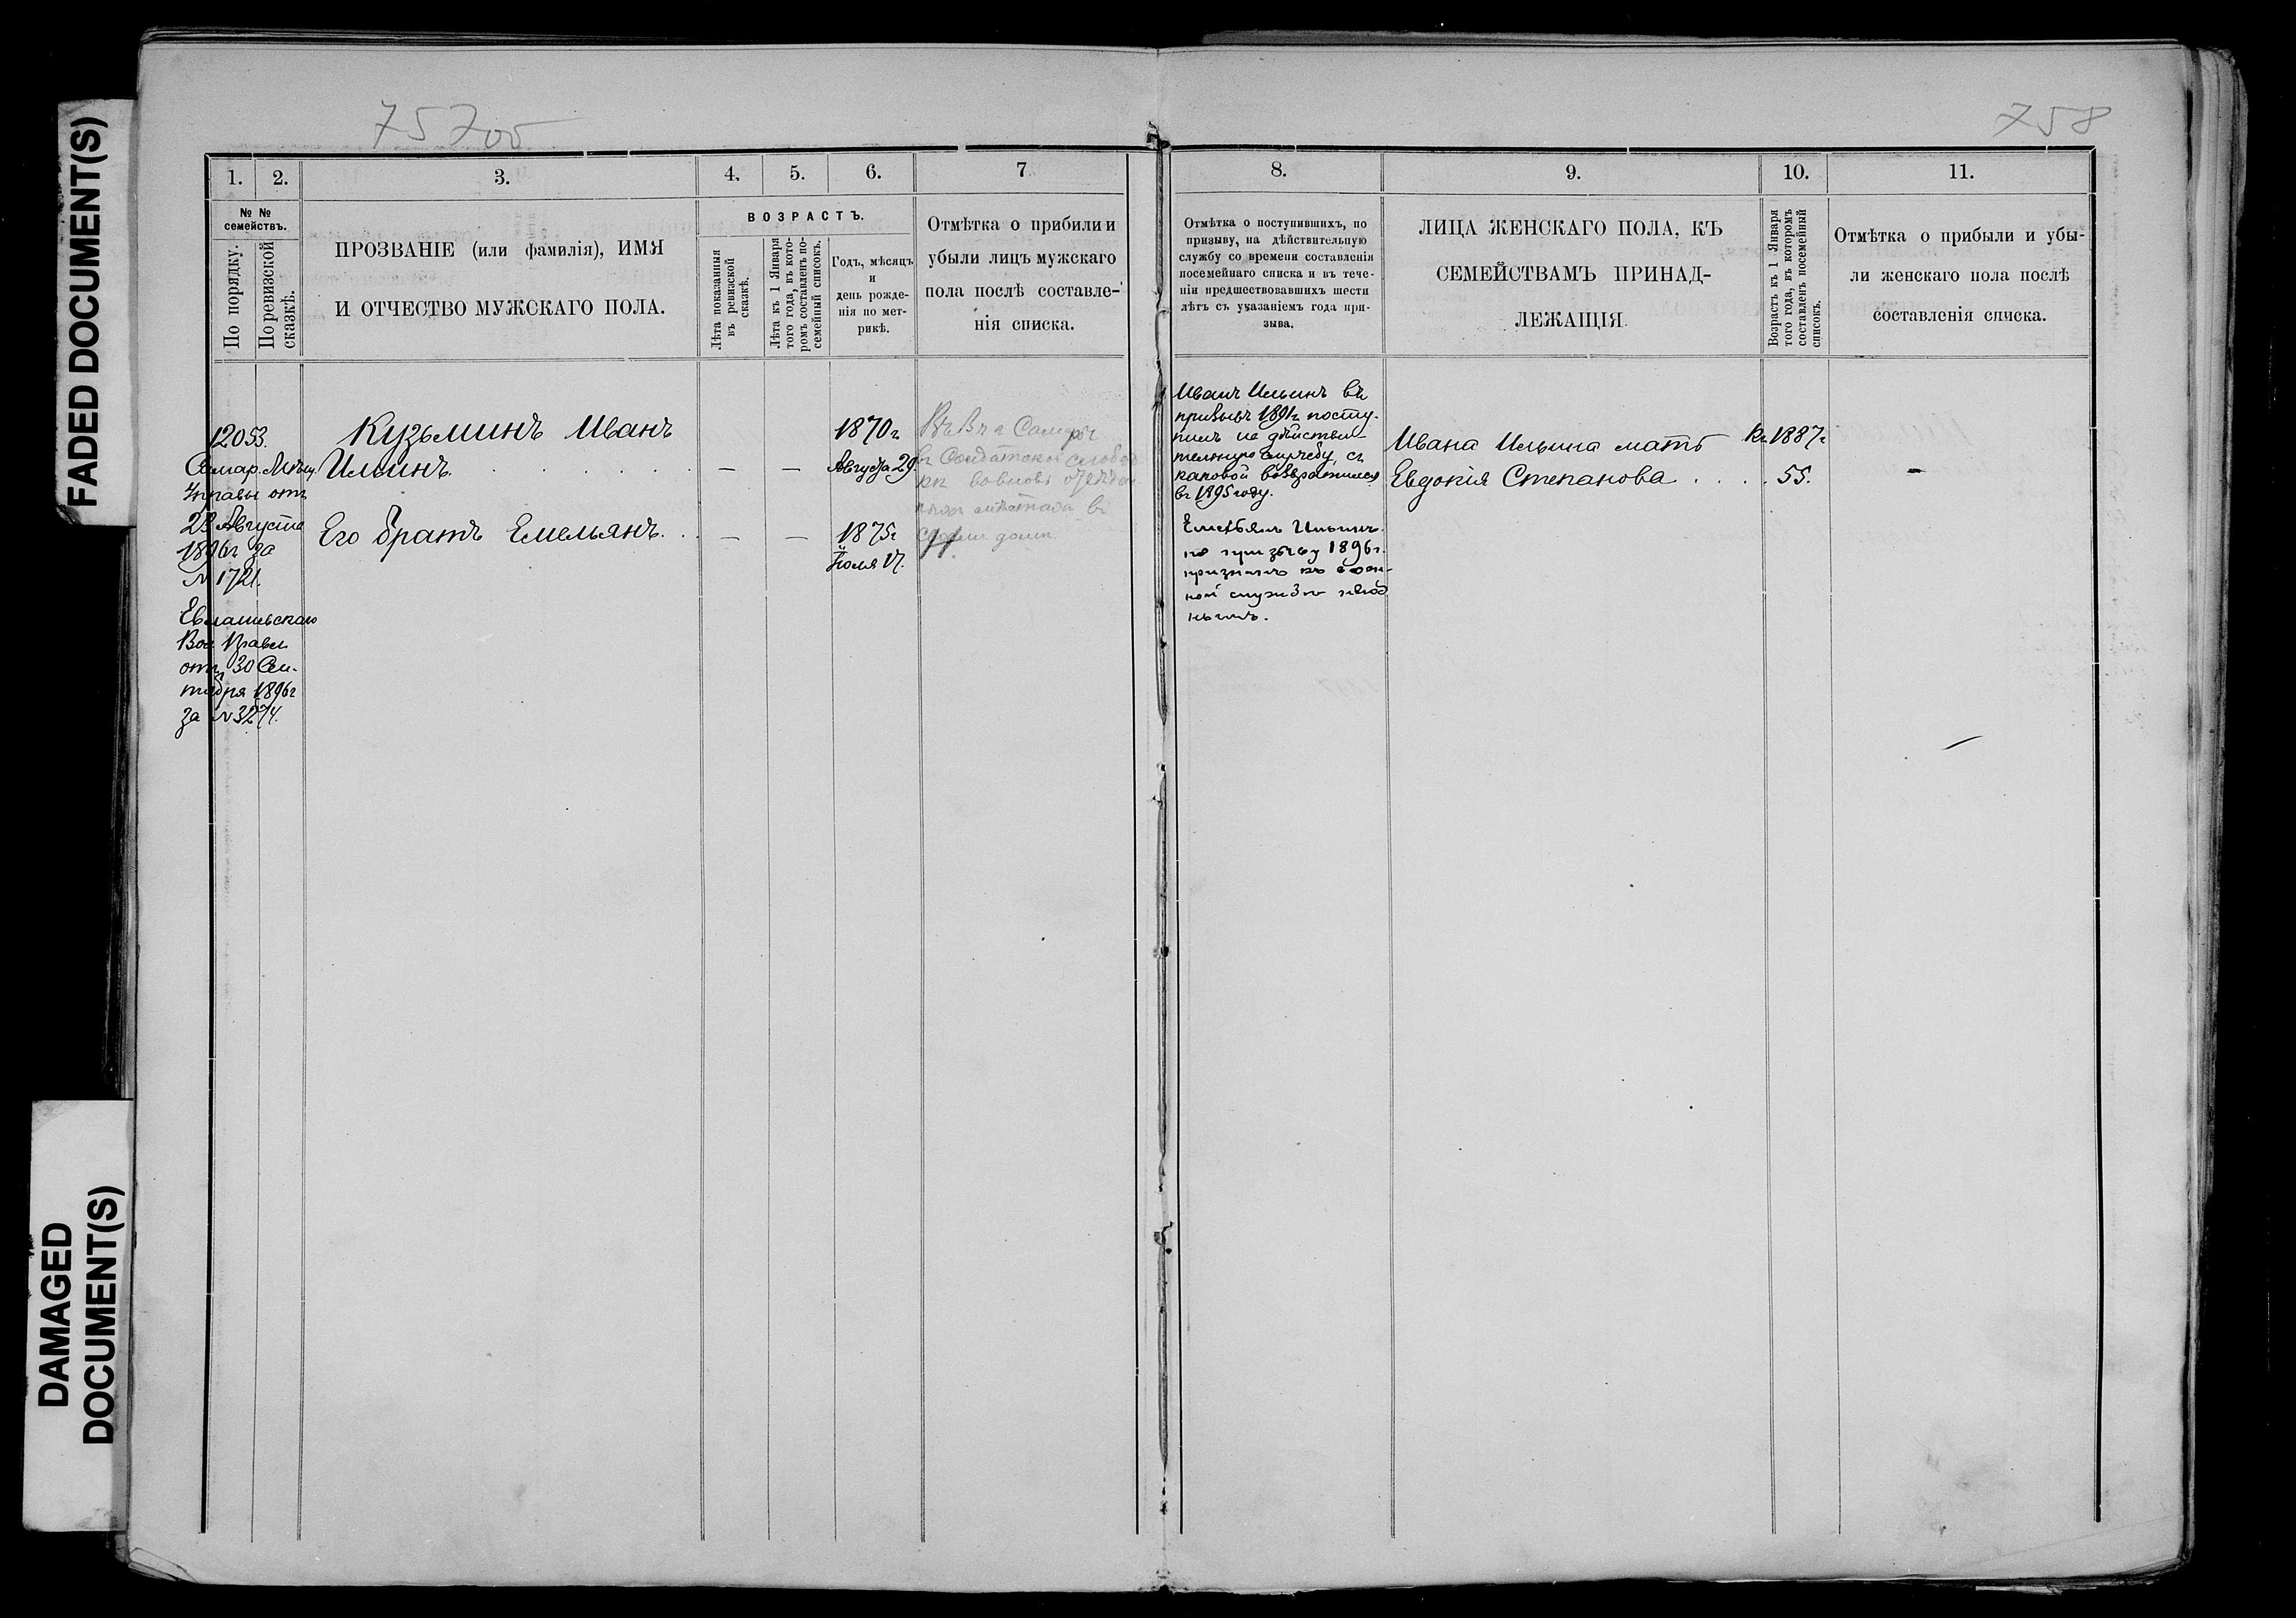 FADED DOCUMENT(S)
DAMAGED
DOCUMENT(S)
757об
758
1.
2.
3.
4.
5.
6.
7
№ №
семействъ.
По порядку.
По ревизской
сказкѣ.
ПРОЗВАНІЕ (или фамилія), ИМЯ
И ОТЧЕСТВО МУЖСКАГО ПОЛА.
ВОЗРАСТЪ.
Лѣта показанния
въ ревизской
сказкѣ.
Лѣта къ 1 Января
того года, въ кото-
ромъ составленъ по-
семейный списокъ.
Годъ, мѣсяцъ
и
день рожде-
нія по мет-
рикѣ.
Отмѣтка о прибили и
убыли лицъ мужскаго
пола послѣ составле-
нія списка.
12053.
Самар. Мѣщ.
Управы отъ
28 Августа
1896г за
№ 1721.
Вол. Правл.
отъ 30 Сен-
тября 1896г
за №3274.
Кузьминъ Иванъ
Ильинъ.
Его братъ Емельянъ.
— —
— —
1870г
Августа 29.
1875г
Іюля 17.
г Самарѣ
въ Солдатской слобод
въ
домѣ
8.
9.
10.
11.
Отмѣтка о поступившихъ, по
призыву, на дѣйствительную
службу со времени составленія
посемейнаго списка и въ тече-
ніи предшествовавшихъ шести
лѣтъ съ указаніемъ года при-
зыва.
ЛИЦА ЖЕНСКАГО ПОЛА, КЪ
СЕМЕЙСТВАМЪ ПРИНАД-
ЛЕЖАЩІЯ.
Возрастъ къ 1 Января
того года, въ которомъ
составленъ посемейный
списокъ.
Отмѣтка о прибыли и убы-
ли женскаго пола послѣ
составленія списка.
Иванъ Ильинъ въ
призывъ 1891г посту-
пилъ на дѣйстви-
тельную службу, съ
каковой возвратился
въ 1895 году.
Емельянъ Ильинъ
по призыву 1896г.
признанъ къ воен-
ной службѣ негод
нымъ.
Ивана Ильина мать
Евдокія Степанова
Къ 1887г
55.
-